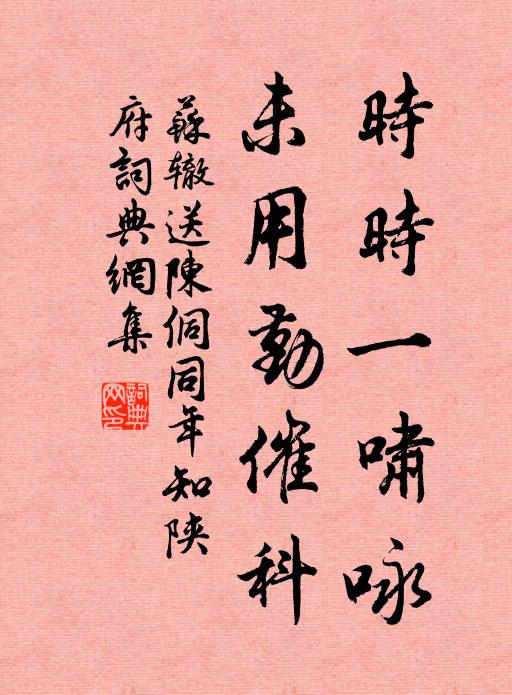 時時一嘯咏
未用勤催科
蘇辙送陳侗同年知陕
府詞典網集
詞典网印